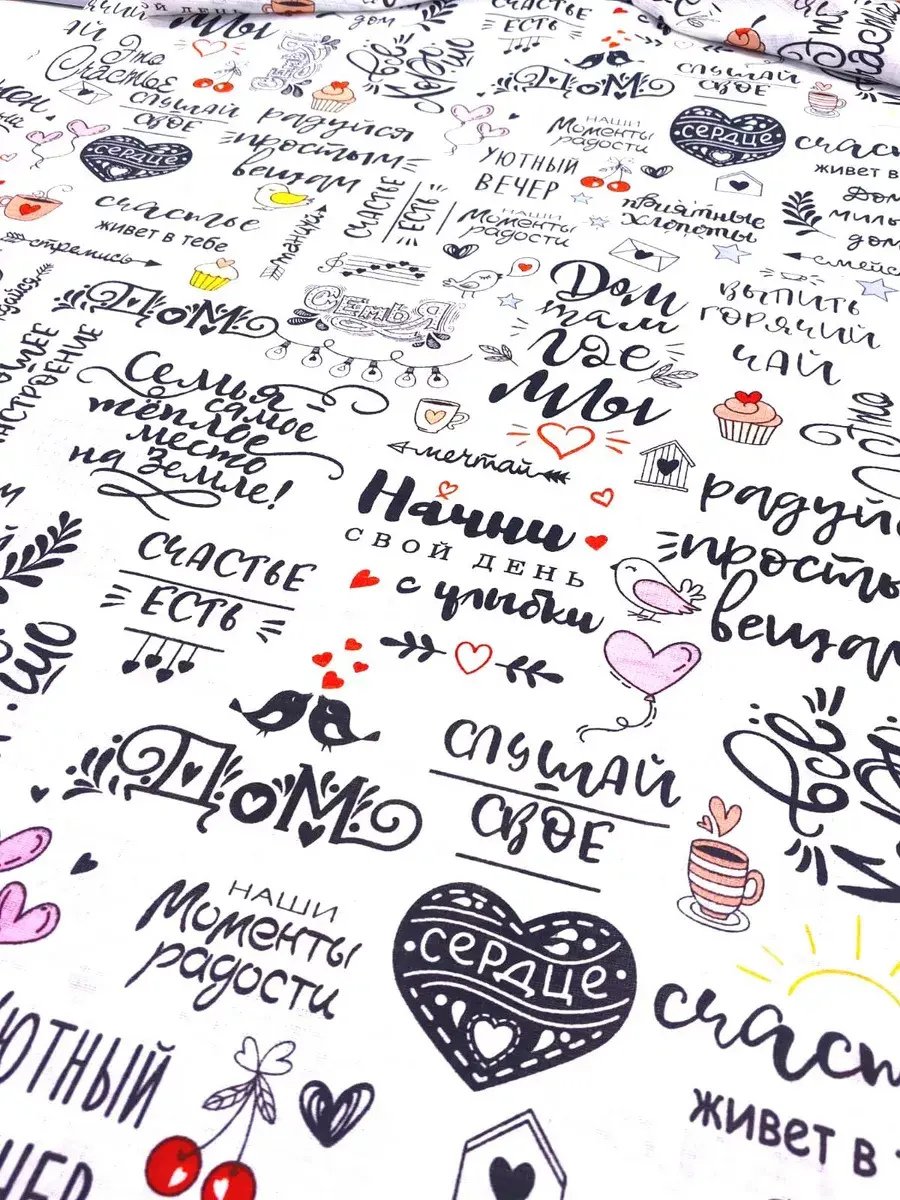 счастье
есть
дом
день
мы
Это
Счастье
слушай
свое
семья
все
дом
слушай
свое
сердце
радуйся
простым
вещам
наши
моменты
радости
сердце
счастье
живет в
уютный
вечер
счастье
живет в тебе
танцуй
счастье
есть
наши
моменты
радости
приятные
хлопоты
Дом
милый
дом
стремись
смейся
Дом
семья
Дом
там
где
мы
выпить
горячий
чай
настроение
Семья
самое
тёплое
место
на земле!
мечтай
Это
Начни
свой день
с улыбки
радуйся
простым
вещам
счастье
есть
Дом
слушай
свое
все
наши
моменты
радости
сердце
счастье
живет в
уютный
вечер